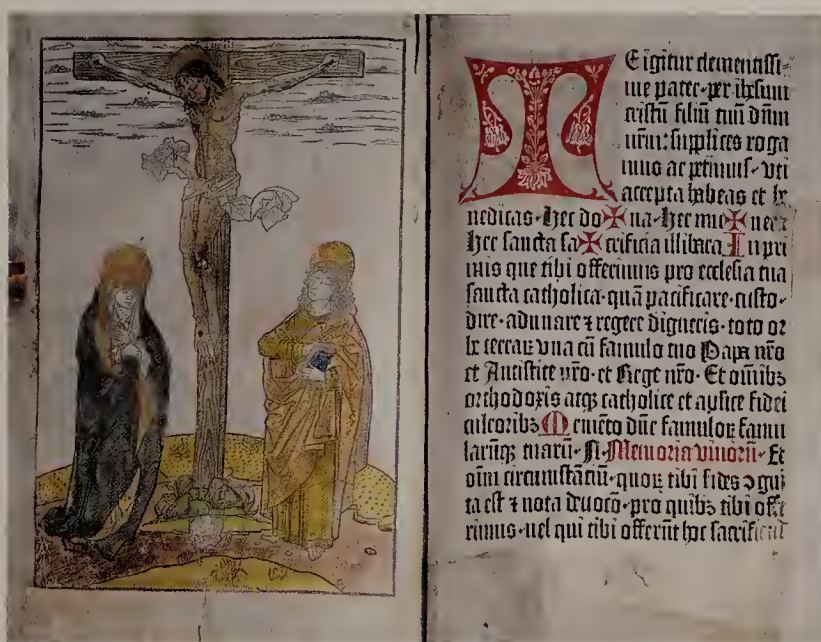 TE igitur clementissi-
me pater·per ihesum
cristū filiū tuū dn̄m
nr̄m: supplices roga
mus ac petimus·vti
accepta habeas et be
nedicas·hec do✠na·hec mu✠nera
hec sancta sa✠crificia illibata In pri
mis que tibi offerimus pro ecclesia tua
sancta catholica·quā pacificare·custo-
dire·adunare ⁊ regere digneris·toto or
be terraꝝ vna cū famulo tuo Papa nr̄o
et Antistite nr̄o·et Rege nr̄o·Et om̄ibꝫ
orthodoxis atqꝫ catholice et aplice fidei
cultoribꝫ Memēto dn̄e famuloꝝ famu
larūqꝫ tuarū·N·Memoria viuorū·Et
oīm circumstāciū·quoꝝ tibi fides ꝯgni
ta est ⁊ nota deuocō·pro quibꝫ tibi offe
rimus·uel qui tibi offerūt hoc sacrificiū